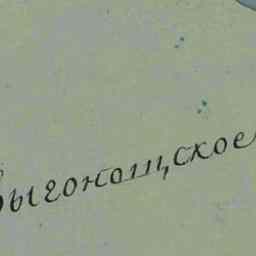 Выгонощское